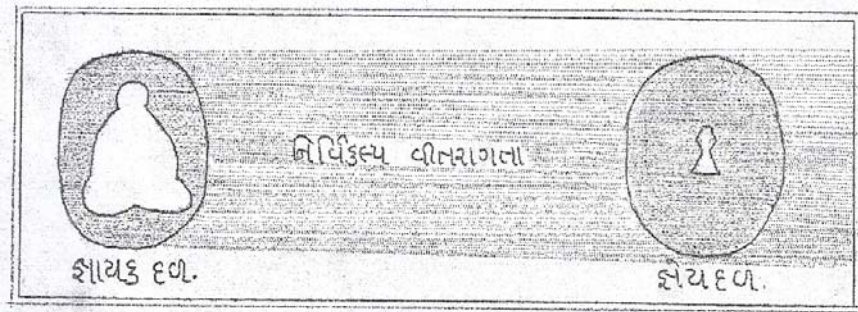 નિર્વિકલ્પ વીતરાગતા
જ્ઞાયક દળ.
જ્ઞેયદળ.